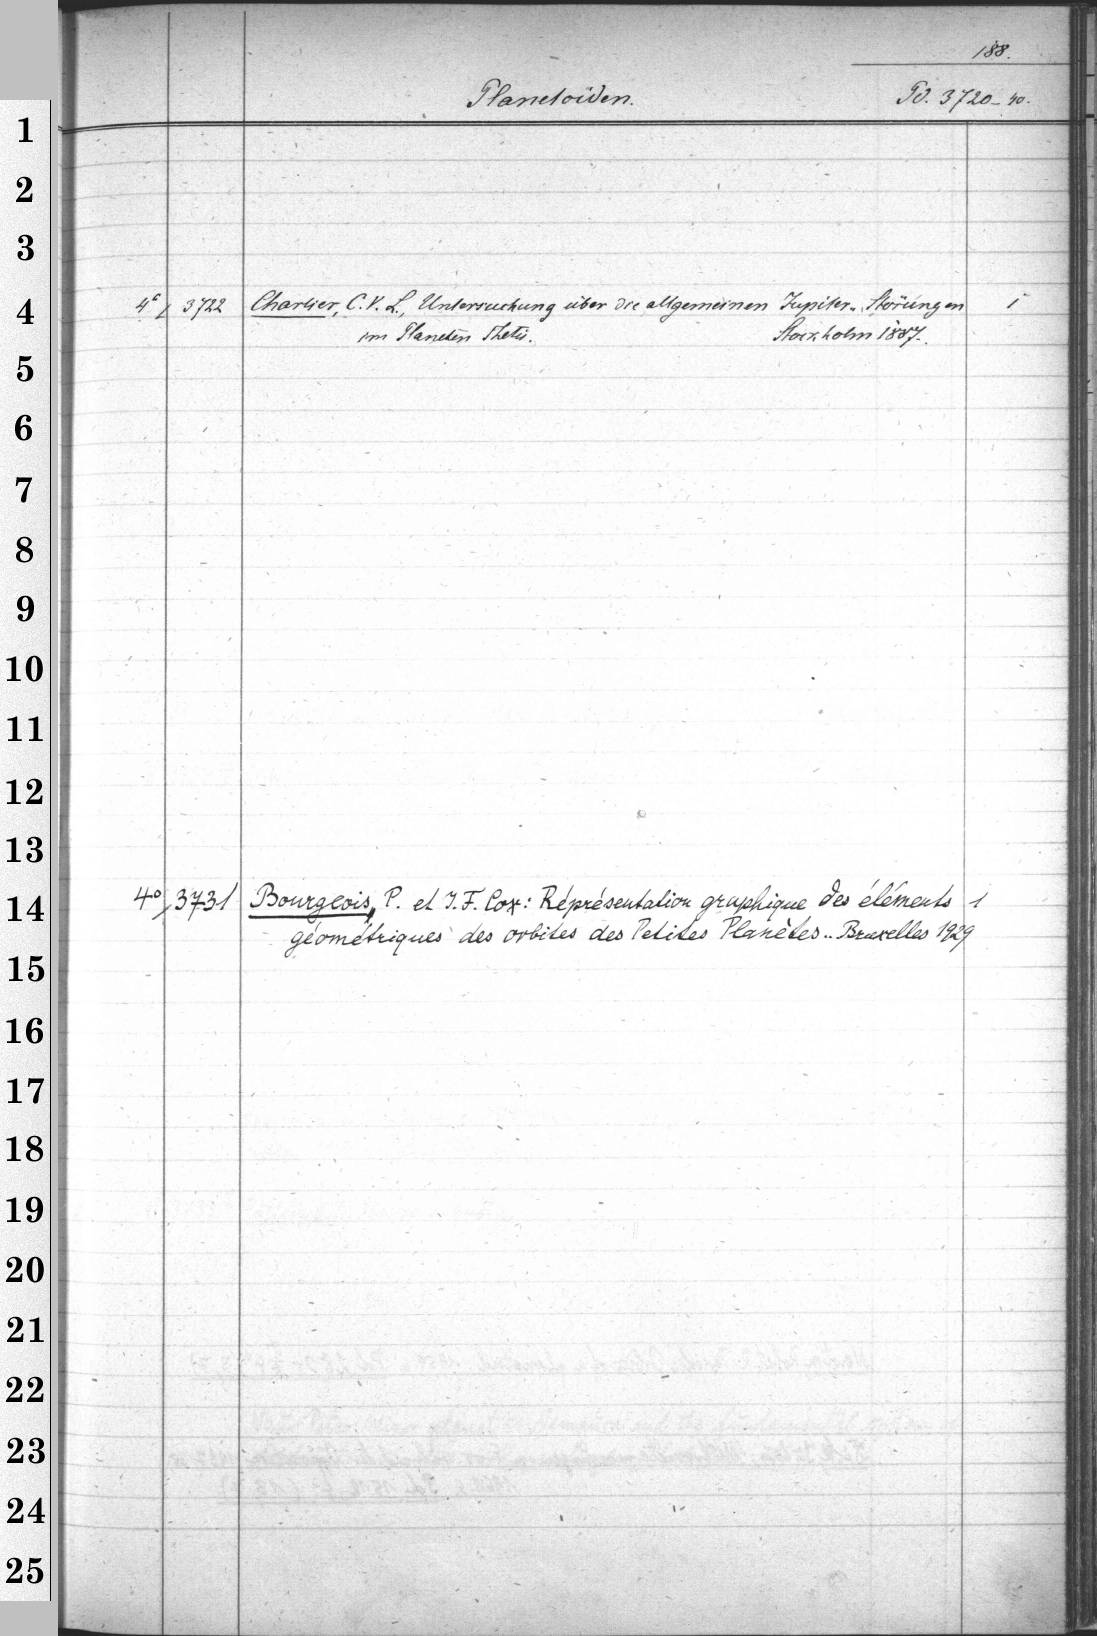 188.
Planetoiden. Pd. 3720-40.
1
2
3
4
4° / 3722 Charlier, C. V. L., Untersuchung über die allgemeinen Jupiter-Störungen 1
im Planeten Thetis. Stockholm 1887.
5
6
7
8
9
10
11
12
13
14
4°/3731 Bourgeois, P. et J. F. Cox: Réprésentation graphique des éléments 1
géométriques des orbites des Petites Planètes.. Bruxelles 1929
15
16
17
18
19
20
21
22
23
24
25